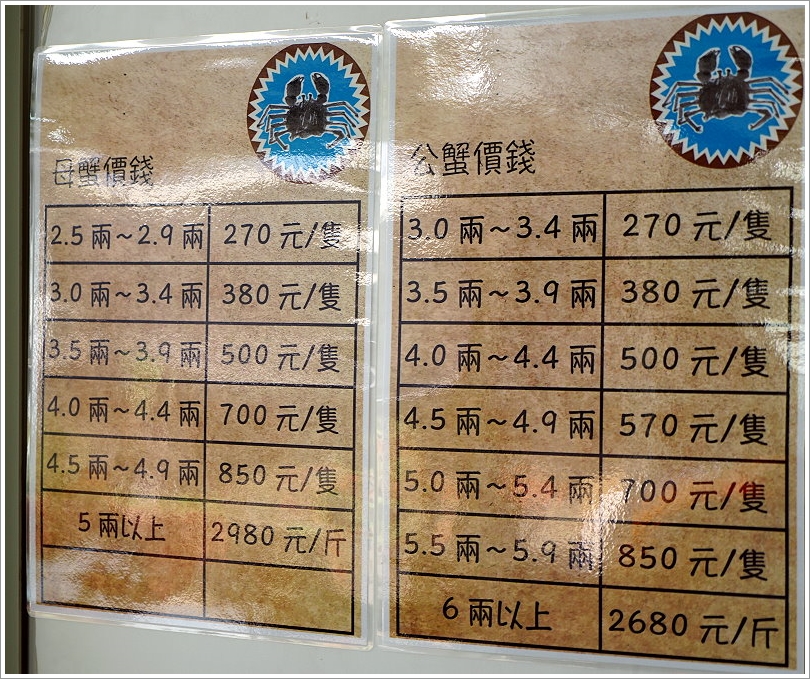 母蟹價錢
2.5 兩～2.9 兩 270 元/隻
3.0 兩～3.4 兩 380 元/隻
3.5 兩～3.9 兩 500 元/隻
4.0 兩～4.4 兩 700 元/隻
4.5 兩～4.9 兩 850 元/隻
5 兩以上 2980 元/斤
公蟹價錢
3.0 兩～3.4 兩 270 元/隻
3.5 兩～3.9 兩 380 元/隻
4.0 兩～4.4 兩 500 元/隻
4.5 兩～4.9 兩 570 元/隻
5.0 兩～5.4 兩 700 元/隻
5.5 兩～5.9 兩 850 元/隻
6 兩以上 2680 元/斤